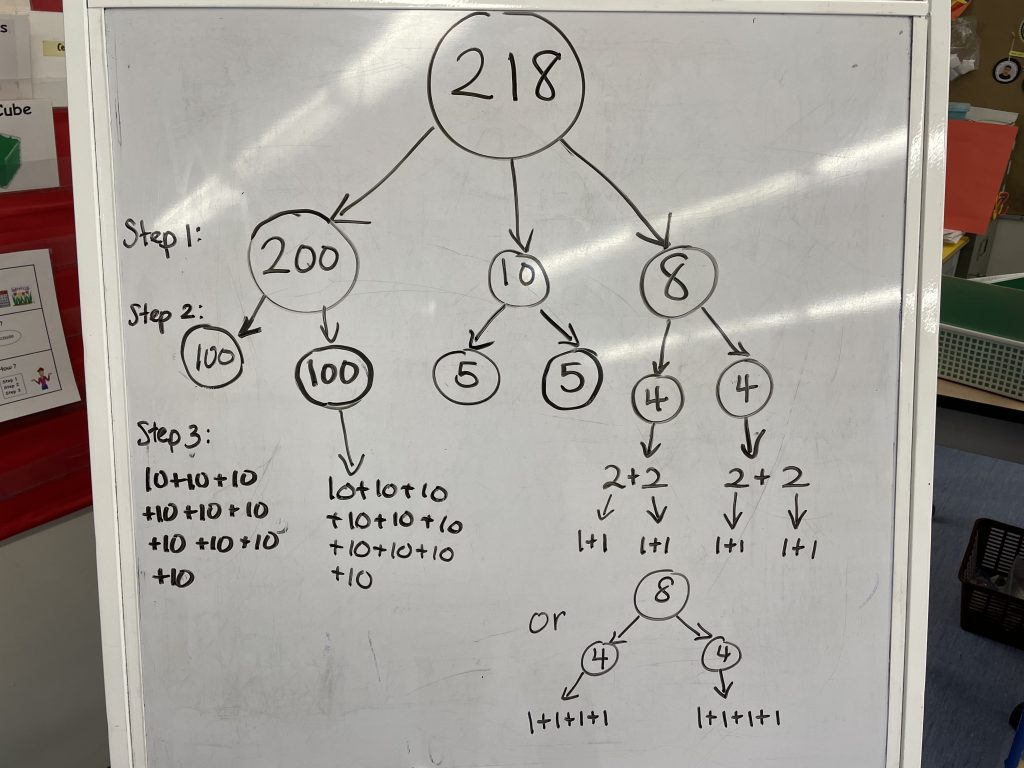 218
Step 1:
200
10
8
Step 2:
100
100
5
5
4
4
Step 3:
10+10+10
+10+10+10
+10+10+10
+10
10+10+10
+10+10+10
+10+10+10
+10
2+2
2+2
1+1
1+1
1+1
1+1
or
8
4
4
1+1+1+1
1+1+1+1
Cube
Step 1
Step 2
Step 3